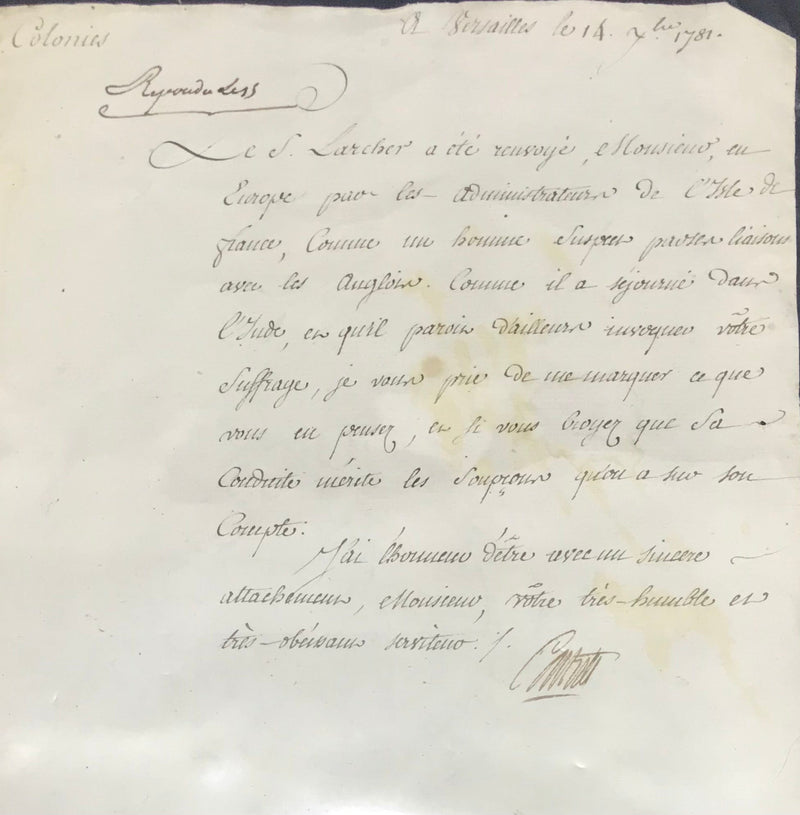 Colonies
A Versailles le 14. 7bre 1781.
Repondu le
Le S. Larcher a été renvoyé, Monsieur, en
Europe par les administrateurs de l'Isle de
france, Comme un homme Suspect par ses liaisons
avec les Anglois. Comme il a séjourné dans
l'Inde, et qu'il paroit d'ailleurs invoquer vôtre
Suffrage, je vous prie de me marquer ce que
vous en pensez, et si vous croyez que Sa
Conduite mérite les Soupçons qu'on a sur son
Compte.
J'ai l'honneur d'être avec un sincere
attachement, Monsieur, vôtre très-humble et
très-obéissant serviteur ./.